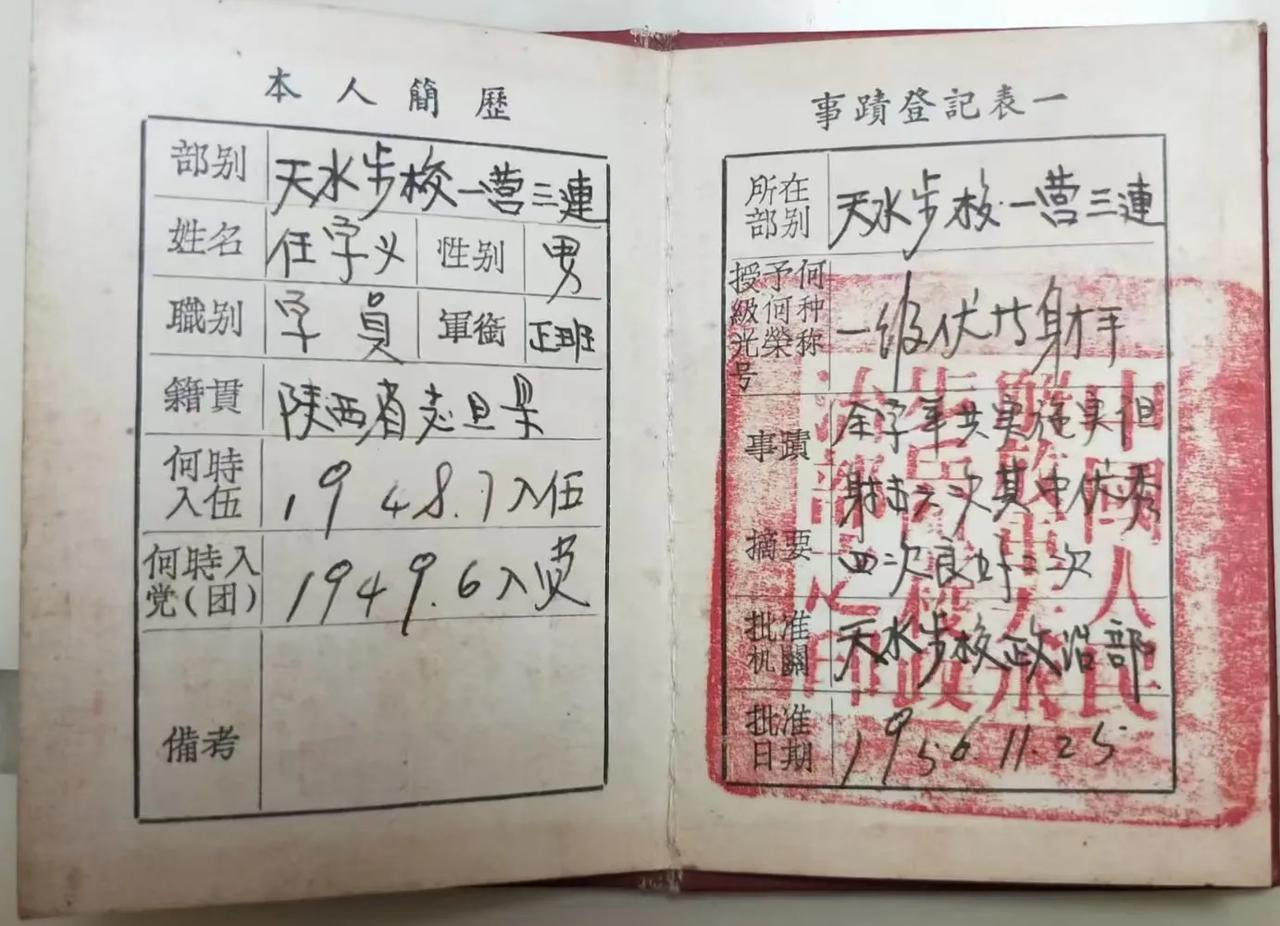 本人簡歷
部别 天水步校一营三連
姓名 任字义 性别 男
職别 学員 軍銜 正班
籍貫 陕西省志旦县
何時入伍 1948.7入伍
何時入党(团) 1949.6入党
備考
事蹟登記表一
所在部别 天水步校一营三連
授予何种級何榮称光号 一级优等射手
事蹟摘要 全学年共实施实弹
射击六次其中优秀
四次良好二次
批准机關 天水步校政治部
批准日期 1956.11.25
中國人民
解放軍天水
步兵學校政
治部之印